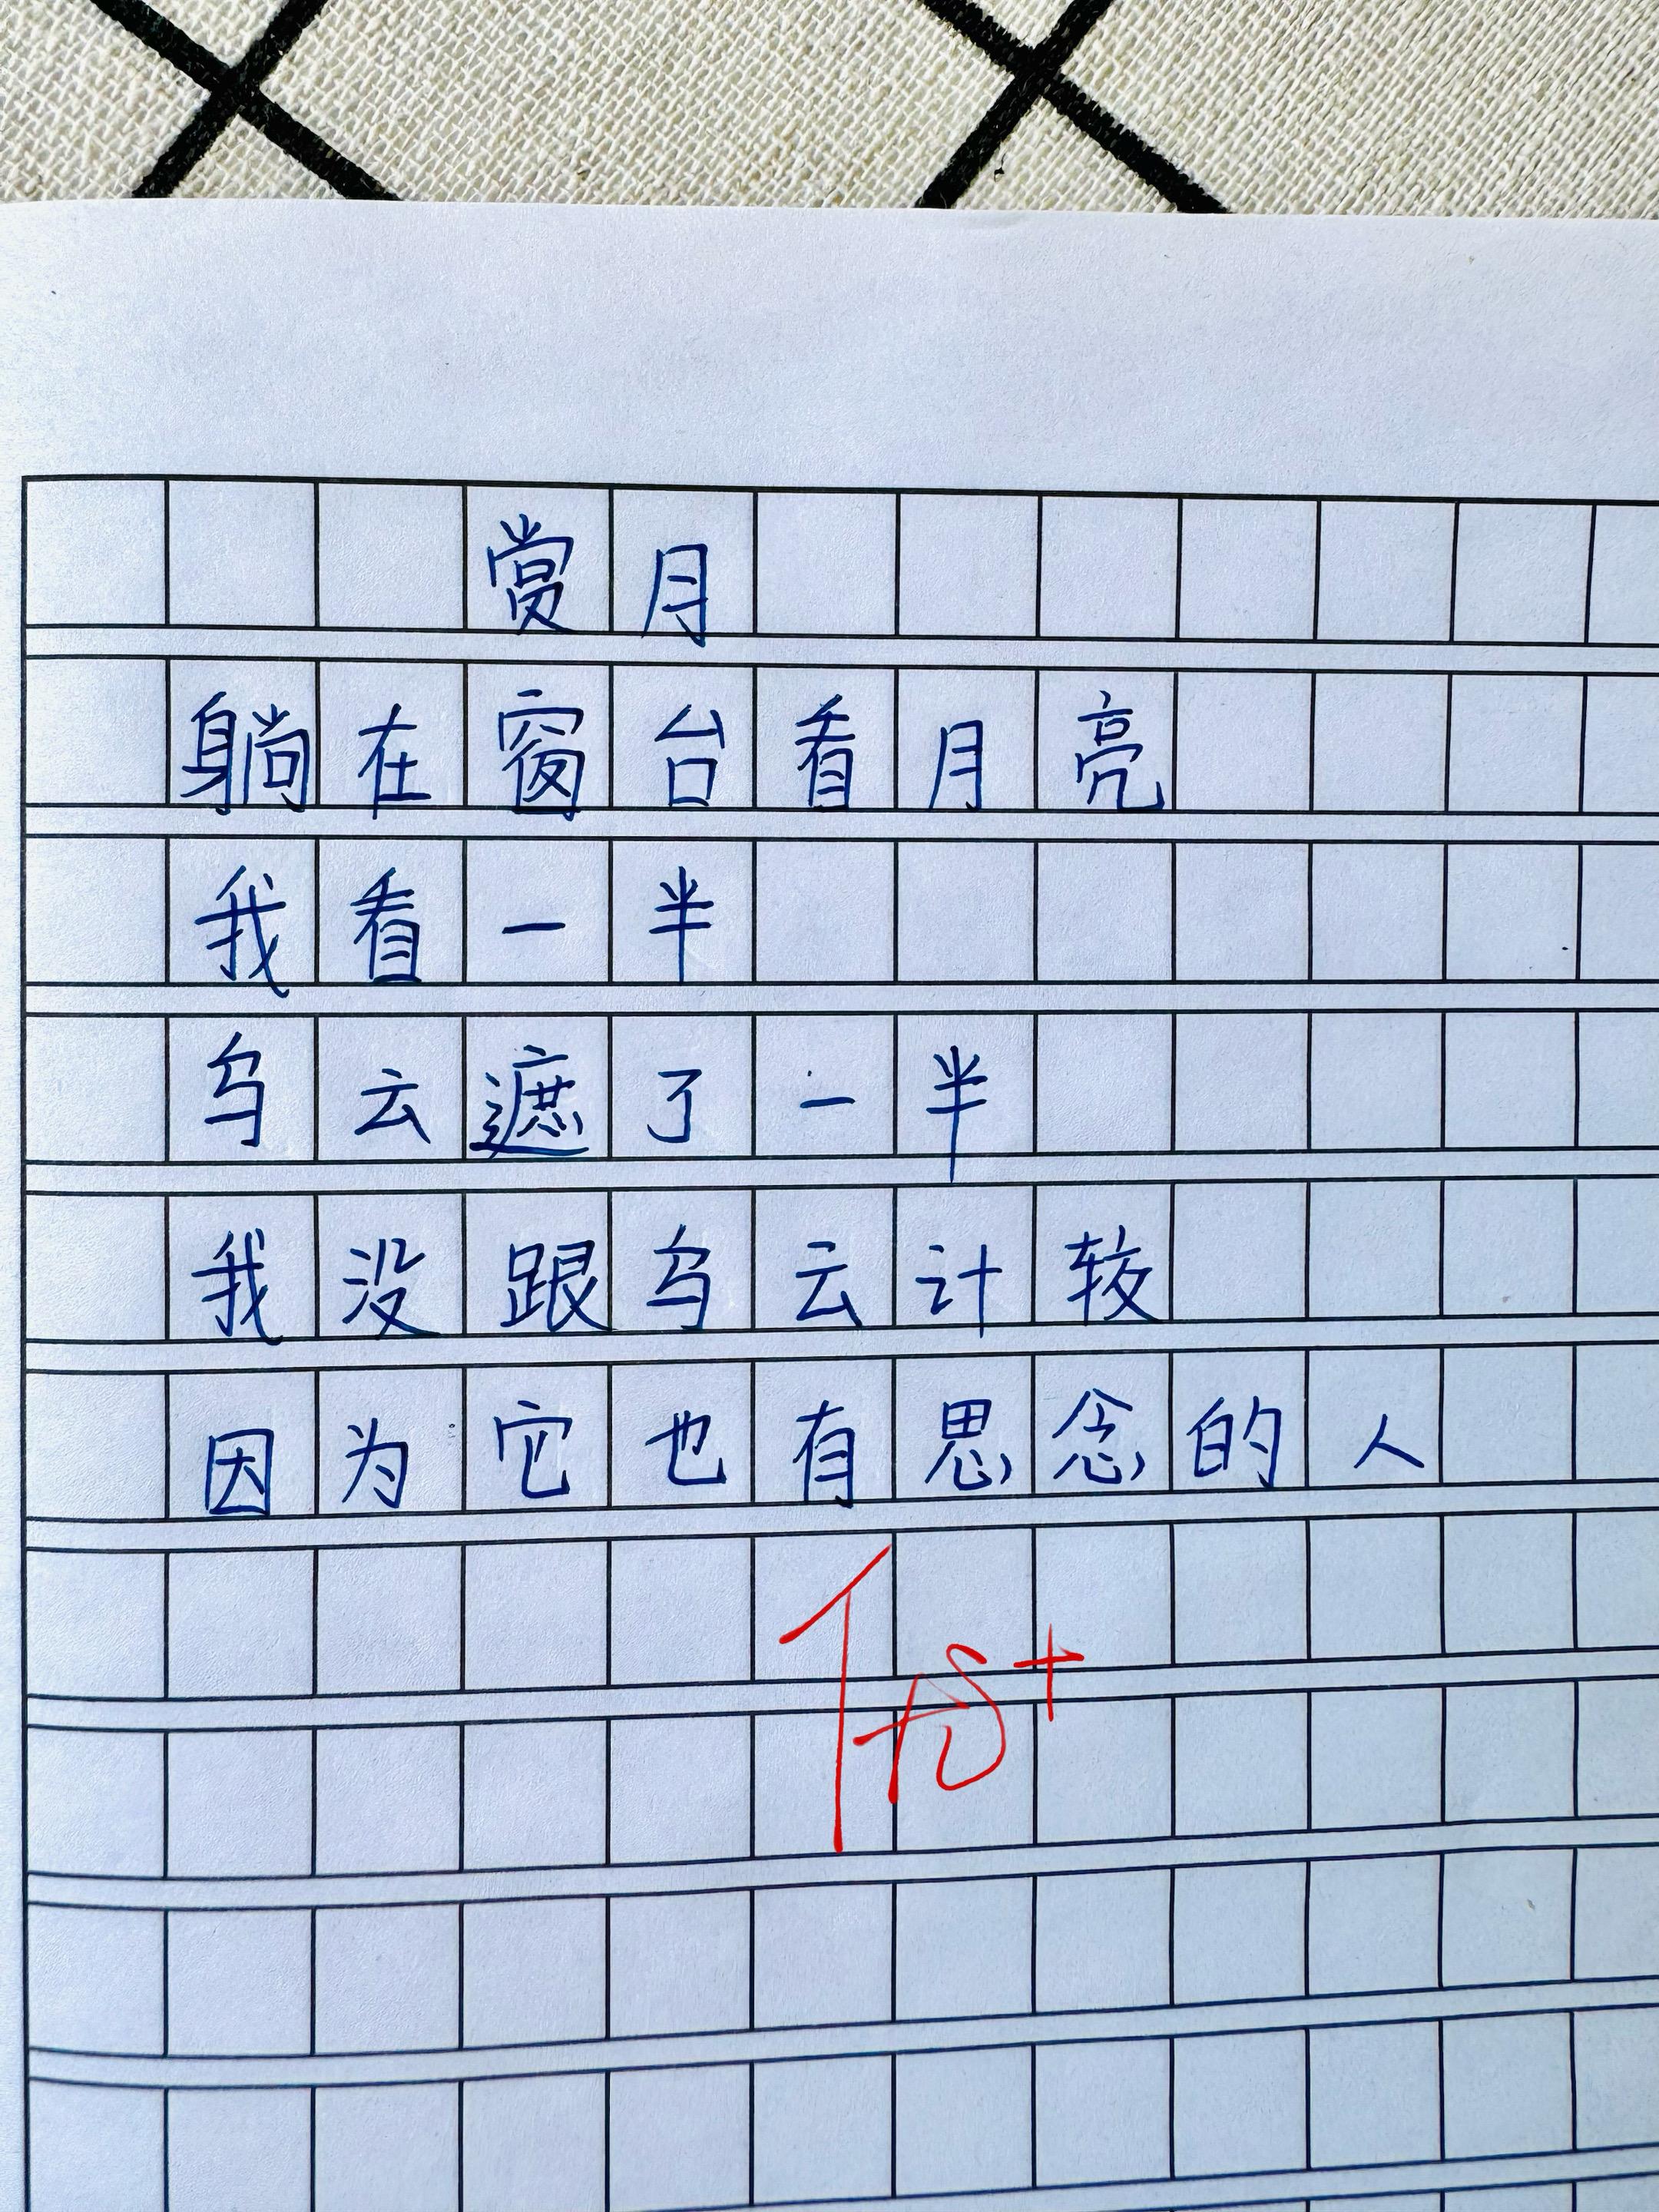 赏月
躺在窗台看月亮
我看一半
乌云遮了一半
我没跟乌云计较
因为它也有思念的人